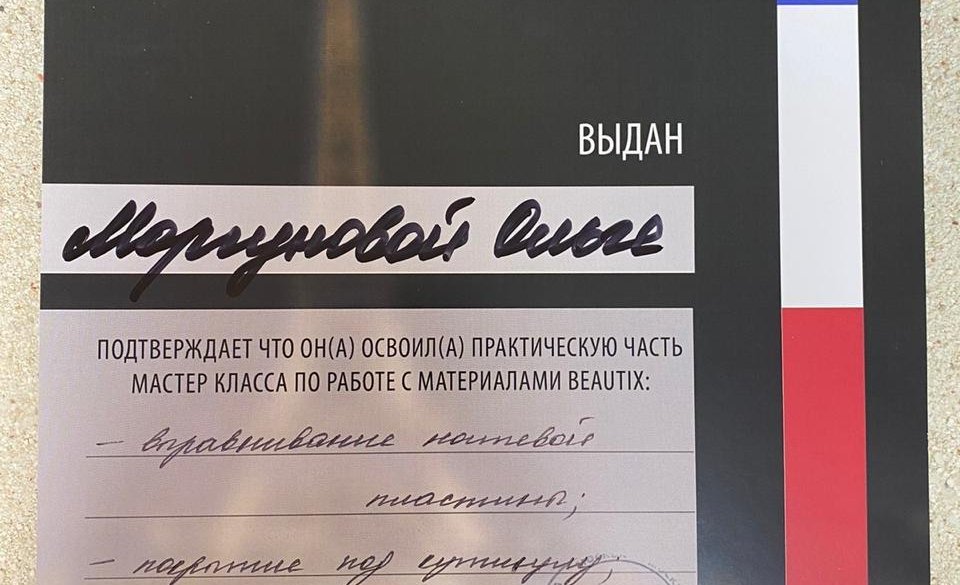 ВЫДАН
Моргуновой Ольге
ПОДТВЕРЖДАЕТ ЧТО ОН(А) ОСВОИЛ(А) ПРАКТИЧЕСКУЮ ЧАСТЬ
МАСТЕР КЛАССА ПО РАБОТЕ С МАТЕРИАЛАМИ BEAUTIX:
- выравнивание ногтевой
пластины;
- покрытие под кутикулу;